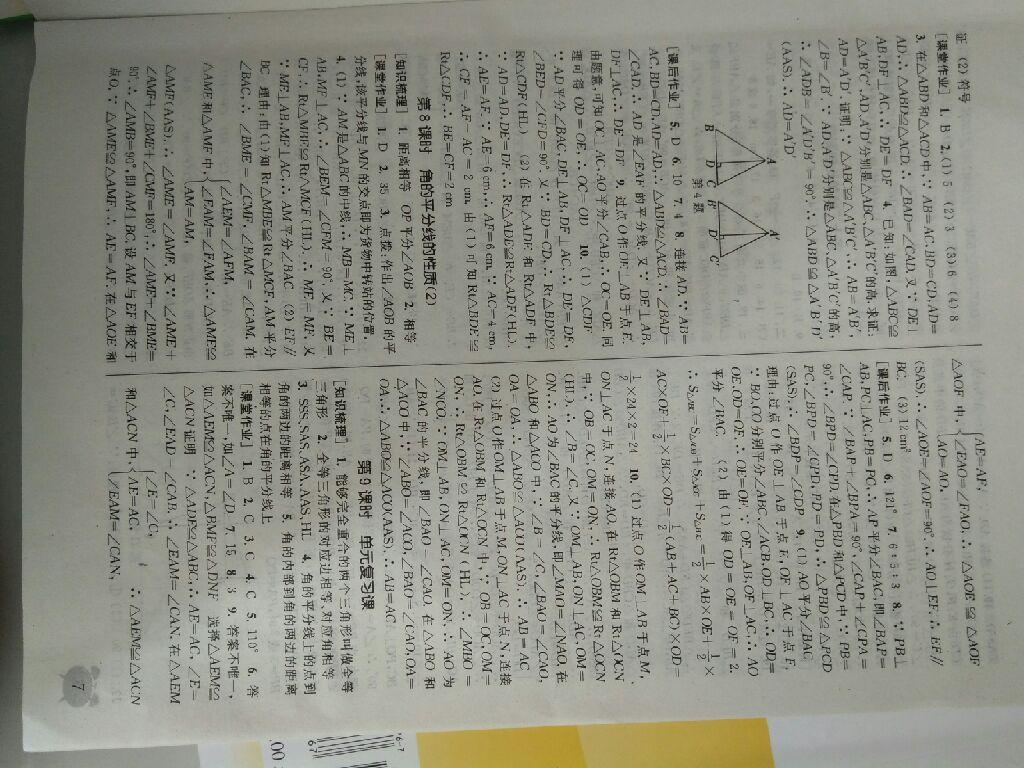 证 (2) 符号
[课堂作业] 1. B 2. (1) 5 (2) 3 (3) 6 (4) 8
3. 在△ABD和△ACD中,∵ AB=AC,BD=CD,AD=
AD,∴ △ABD≌△ACD.∴ ∠BAD=∠CAD.又∵ DE⊥
AB,DF⊥AC,∴ DE=DF 4. 已知:如图,△ABC≌
△A'B'C',AD、A'D'分别是△ABC、△A'B'C'的高.求证:
AD=A'D' 证明:∵ △ABC≌△A'B'C',∴ AB=A'B',
∠B=∠B'.∵ AD、A'D'分别是△ABC、△A'B'C'的高,
∴ ∠ADB=∠A'D'B'=90°.∴ △ABD≌△A'B'D'
(AAS).∴ AD=A'D'
A A'
B D C B' D' C'
第4题
[课后作业] 5. D 6. 10 7. 4 8. 连接AD.∵ AB=
AC,BD=CD,AD=AD,∴ △ABD≌△ACD.∴ ∠BAD=
∠CAD.∴ AD是∠EAF的平分线.又∵ DE⊥AB,
DF⊥AC,∴ DE=DF 9. 过点O作OE⊥AB于点E.
由题意,可知OC⊥AC,AO平分∠CAB,∴ OC=OE.同
理可得OD=OE.∴ OC=OD 10. (1) △CDF
∵ AD平分∠BAC,DE⊥AB,DF⊥AC,∴ DE=DF,
∠BED=∠CFD=90°.又∵ BD=CD,∴ Rt△BDE≌
Rt△CDF(HL) (2) 在Rt△ADE和Rt△ADF中,
∵ AD=AD,DE=DF,∴ Rt△ADE≌Rt△ADF(HL).
∴ AD=AF.∵ AE=6 cm,∴ AF=6 cm.∵ AC=4 cm,
∴ CF=AF-AC=2 cm.由(1)可知Rt△BDE≌
Rt△CDF,∴ BE=CF=2 cm
第8课时 角的平分线的性质(2)
[知识梳理] 1. 距离相等 OP平分∠AOB 2. 相等
[课堂作业] 1. D 2. 35 3. 点拨:作出∠AOB的平
分线,该平分线与MN的交点即为货物中转站的位置.
4. (1) ∵ AM是△ABC的中线,∴ MB=MC.∵ ME⊥
AB,MF⊥AC,∴ ∠BEM=∠CFM=90°.又∵ BE=
CF,∴ Rt△MBE≌Rt△MCF(HL).∴ ME=MF.又
∵ ME⊥AB,MF⊥AC,∴ AM平分∠BAC (2) EF∥
BC 理由:由(1)知Rt△MBE≌Rt△MCF,AM平分
∠BAC,∴ ∠BME=∠CMF,∠BAM=∠CAM.在
△AME和△AMF中,{∠AEM=∠AFM,
∠EAM=∠FAM,∴ △AME≌
AM=AM,
△AMF(AAS).∴ ∠AME=∠AMF.又∵ ∠AME+
∠AMF+∠BME+∠CMF=180°,∴ ∠AME+∠BME=
90°.∴ ∠AMB=90°,即AM⊥BC.设AM与EF相交于
点O.∵ △AME≌△AMF,∴ AE=AF.在△AOE和
△AOF中,{AE=AF,
∠EAO=∠FAO,∴ △AOE≌△AOF
AO=AO,
(SAS).∴ ∠AOE=∠AOF=90°.∴ AO⊥EF.∴ EF∥
BC. (3) 12 cm²
[课后作业] 5. D 6. 121° 7. 6∶5∶3 8. ∵ PB⊥
AB,PC⊥AC,PB=PC,∴ AP平分∠BAC,即∠BAP=
∠CAP.∵ ∠BAP+∠BPA=90°,∠CAP+∠CPA=
90°,∴ ∠BPD=∠CPD.在△PBD和△PCD中,∵ PB=
PC,∠BPD=∠CPD,PD=PD,∴ △PBD≌△PCD
(SAS).∴ ∠BDP=∠CDP 9. (1) AO平分∠BAC
理由:过点O作OE⊥AB于点E,OF⊥AC于点F.
∵ BO、CO分别平分∠ABC、∠ACB,OD⊥BC,∴ OD=
OE,OD=OF.∴ OE=OF.∵ OE⊥AB,OF⊥AC,∴ AO
平分∠BAC. (2) 由(1)得OD=OE=OF=2.
∴ S△ABC=S△AOB+S△AOC+S△BOC=1/2×AB×OE+1/2×
AC×OF+1/2×BC×OD=1/2(AB+AC+BC)×OD=
1/2×24×2=24 10. (1) 过点O作OM⊥AB于点M,
ON⊥AC于点N,连接AO.在Rt△OBM和Rt△OCN
中,∵ OB=OC,OM=ON,∴ Rt△OBM≌Rt△OCN
(HL).∴ ∠B=∠C.又∵ OM⊥AB,ON⊥AC,OM=
ON,∴ AO为∠BAC的平分线,即∠MAO=∠NAO.在
△ABO和△ACO中,∵ ∠B=∠C,∠BAO=∠CAO,
OA=OA,∴ △ABO≌△ACO(AAS).∴ AB=AC
(2) 过点O作OM⊥AB于点M,ON⊥AC于点N,连接
AO.在Rt△OBM和Rt△OCN中,∵ OB=OC,OM=
ON,∴ Rt△OBM≌Rt△OCN(HL).∴ ∠MBO=
∠NCO.∵ OM⊥AB,ON⊥AC,OM=ON,∴ AO为
∠BAC的平分线,即∠BAO=∠CAO.在△ABO和
△ACO中,∵ ∠ABO=∠ACO,∠BAO=∠CAO,OA=
OA,∴ △ABO≌△ACO(AAS).∴ AB=AC
第9课时 单元复习课
[知识梳理] 1. 能够完全重合的两个三角形叫做全等
三角形 2. 全等三角形的对应边相等,对应角相等
3. SSS,SAS,ASA,AAS,HL 4. 角的平分线上的点到
角的两边的距离相等 5. 角的内部到角的两边的距离
相等的点在角的平分线上
[课堂作业] 1. B 2. C 3. C 4. C 5. 110° 6. 答
案不唯一,如∠A=∠D 7. 15 8. 3 9. 答案不唯一,
如△AEM≌△ACN,△BMF≌△DNF 选择△AEM≌
△ACN证明 ∵ △ADE≌△ABC,∴ AE=AC,∠E=
∠C,∠EAD=∠CAB.∴ ∠EAM=∠CAN.在△AEM
和△ACN中,{∠E=∠C,
AE=AC, ∴ △AEM≌△ACN
∠EAM=∠CAN,
7